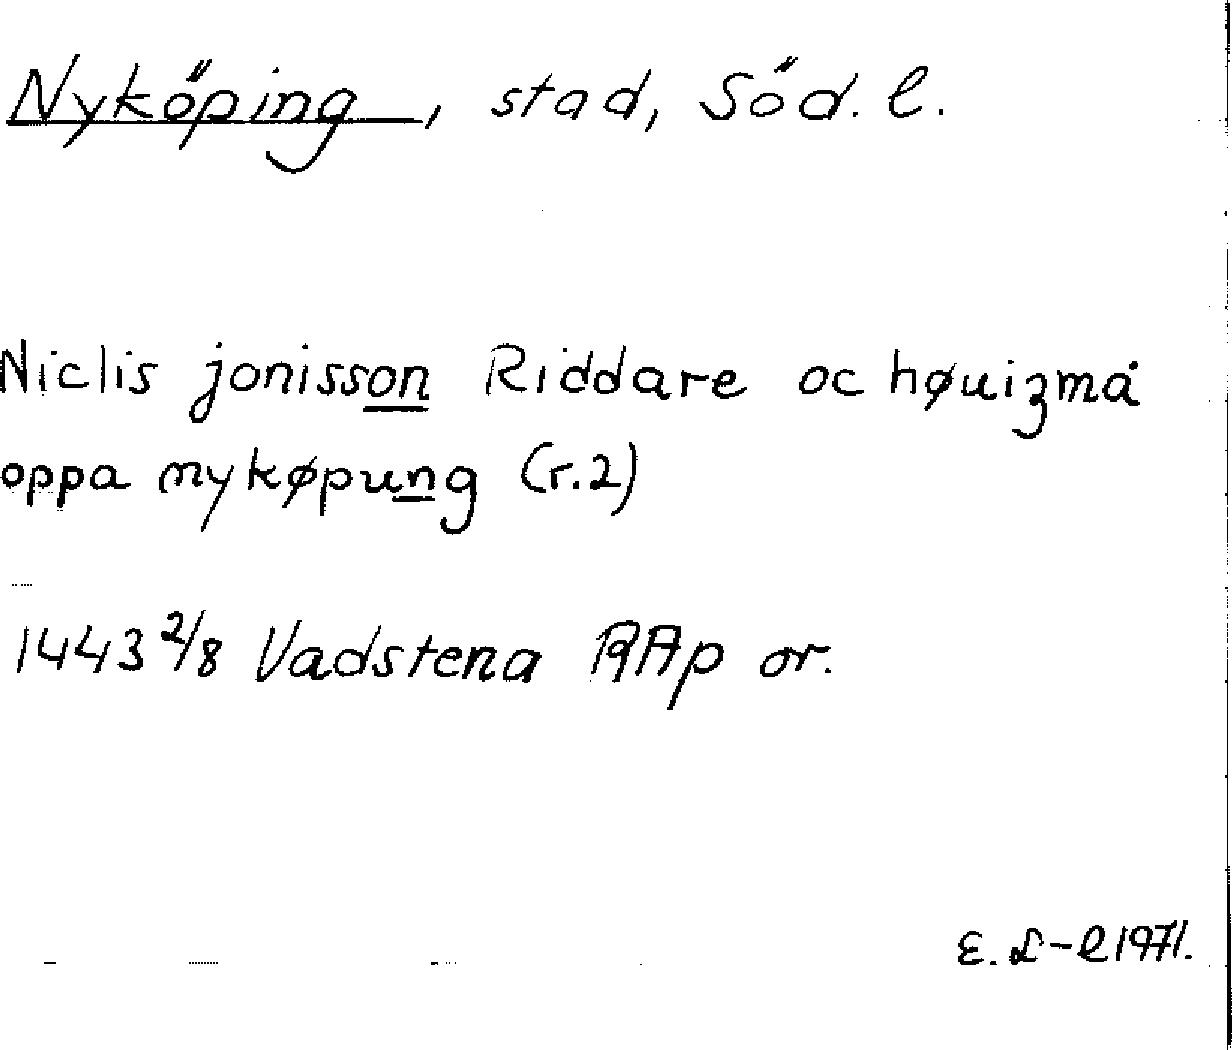 Nyköping, stad, Söd. l.
Niclis jonisson Riddare oc høuizmå
oppa nykøpung (r.2)
1443 2/8 Vadstena RAp or.
E. L-l 1971.